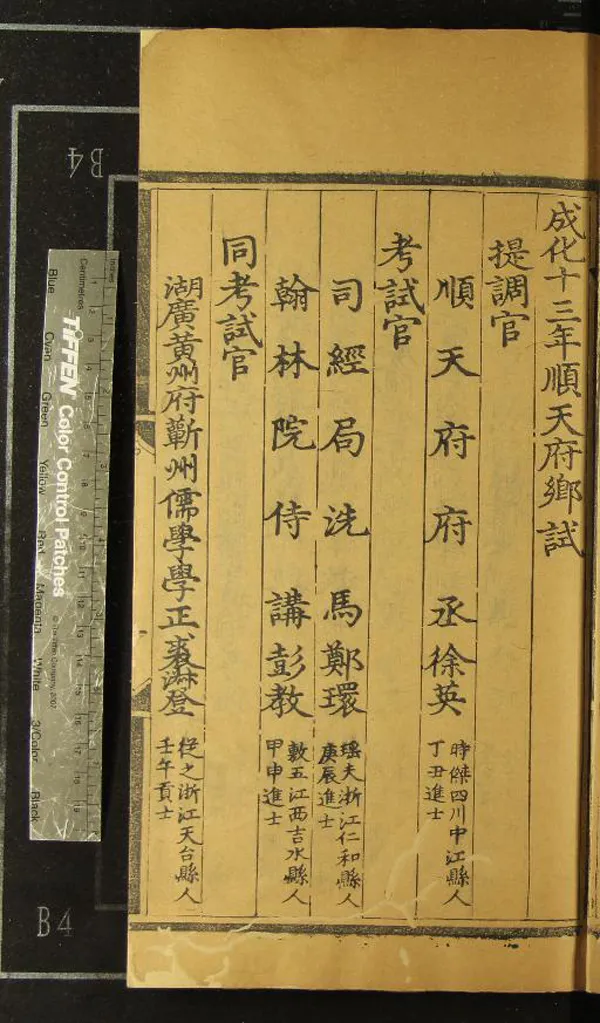 成化十三年順天府鄉試
提調官
順天府府丞徐英
時傑四川中江縣人
丁丑進士
考試官
司經局洗馬鄭環
瑤夫浙江仁和縣人
庚辰進士
翰林院侍講彭教
敷五江西吉水縣人
甲申進士
同考試官
湖廣黃州府蘄州儒學學正裘淵登
從之浙江天台縣人
壬午貢士
B4
inches
Centimetres
TIFFEN Color Control Patches
© The Tiffen Company, 2007
Blue
Cyan
Green
Yellow
Red
Magenta
White
3/Color
Black
B4